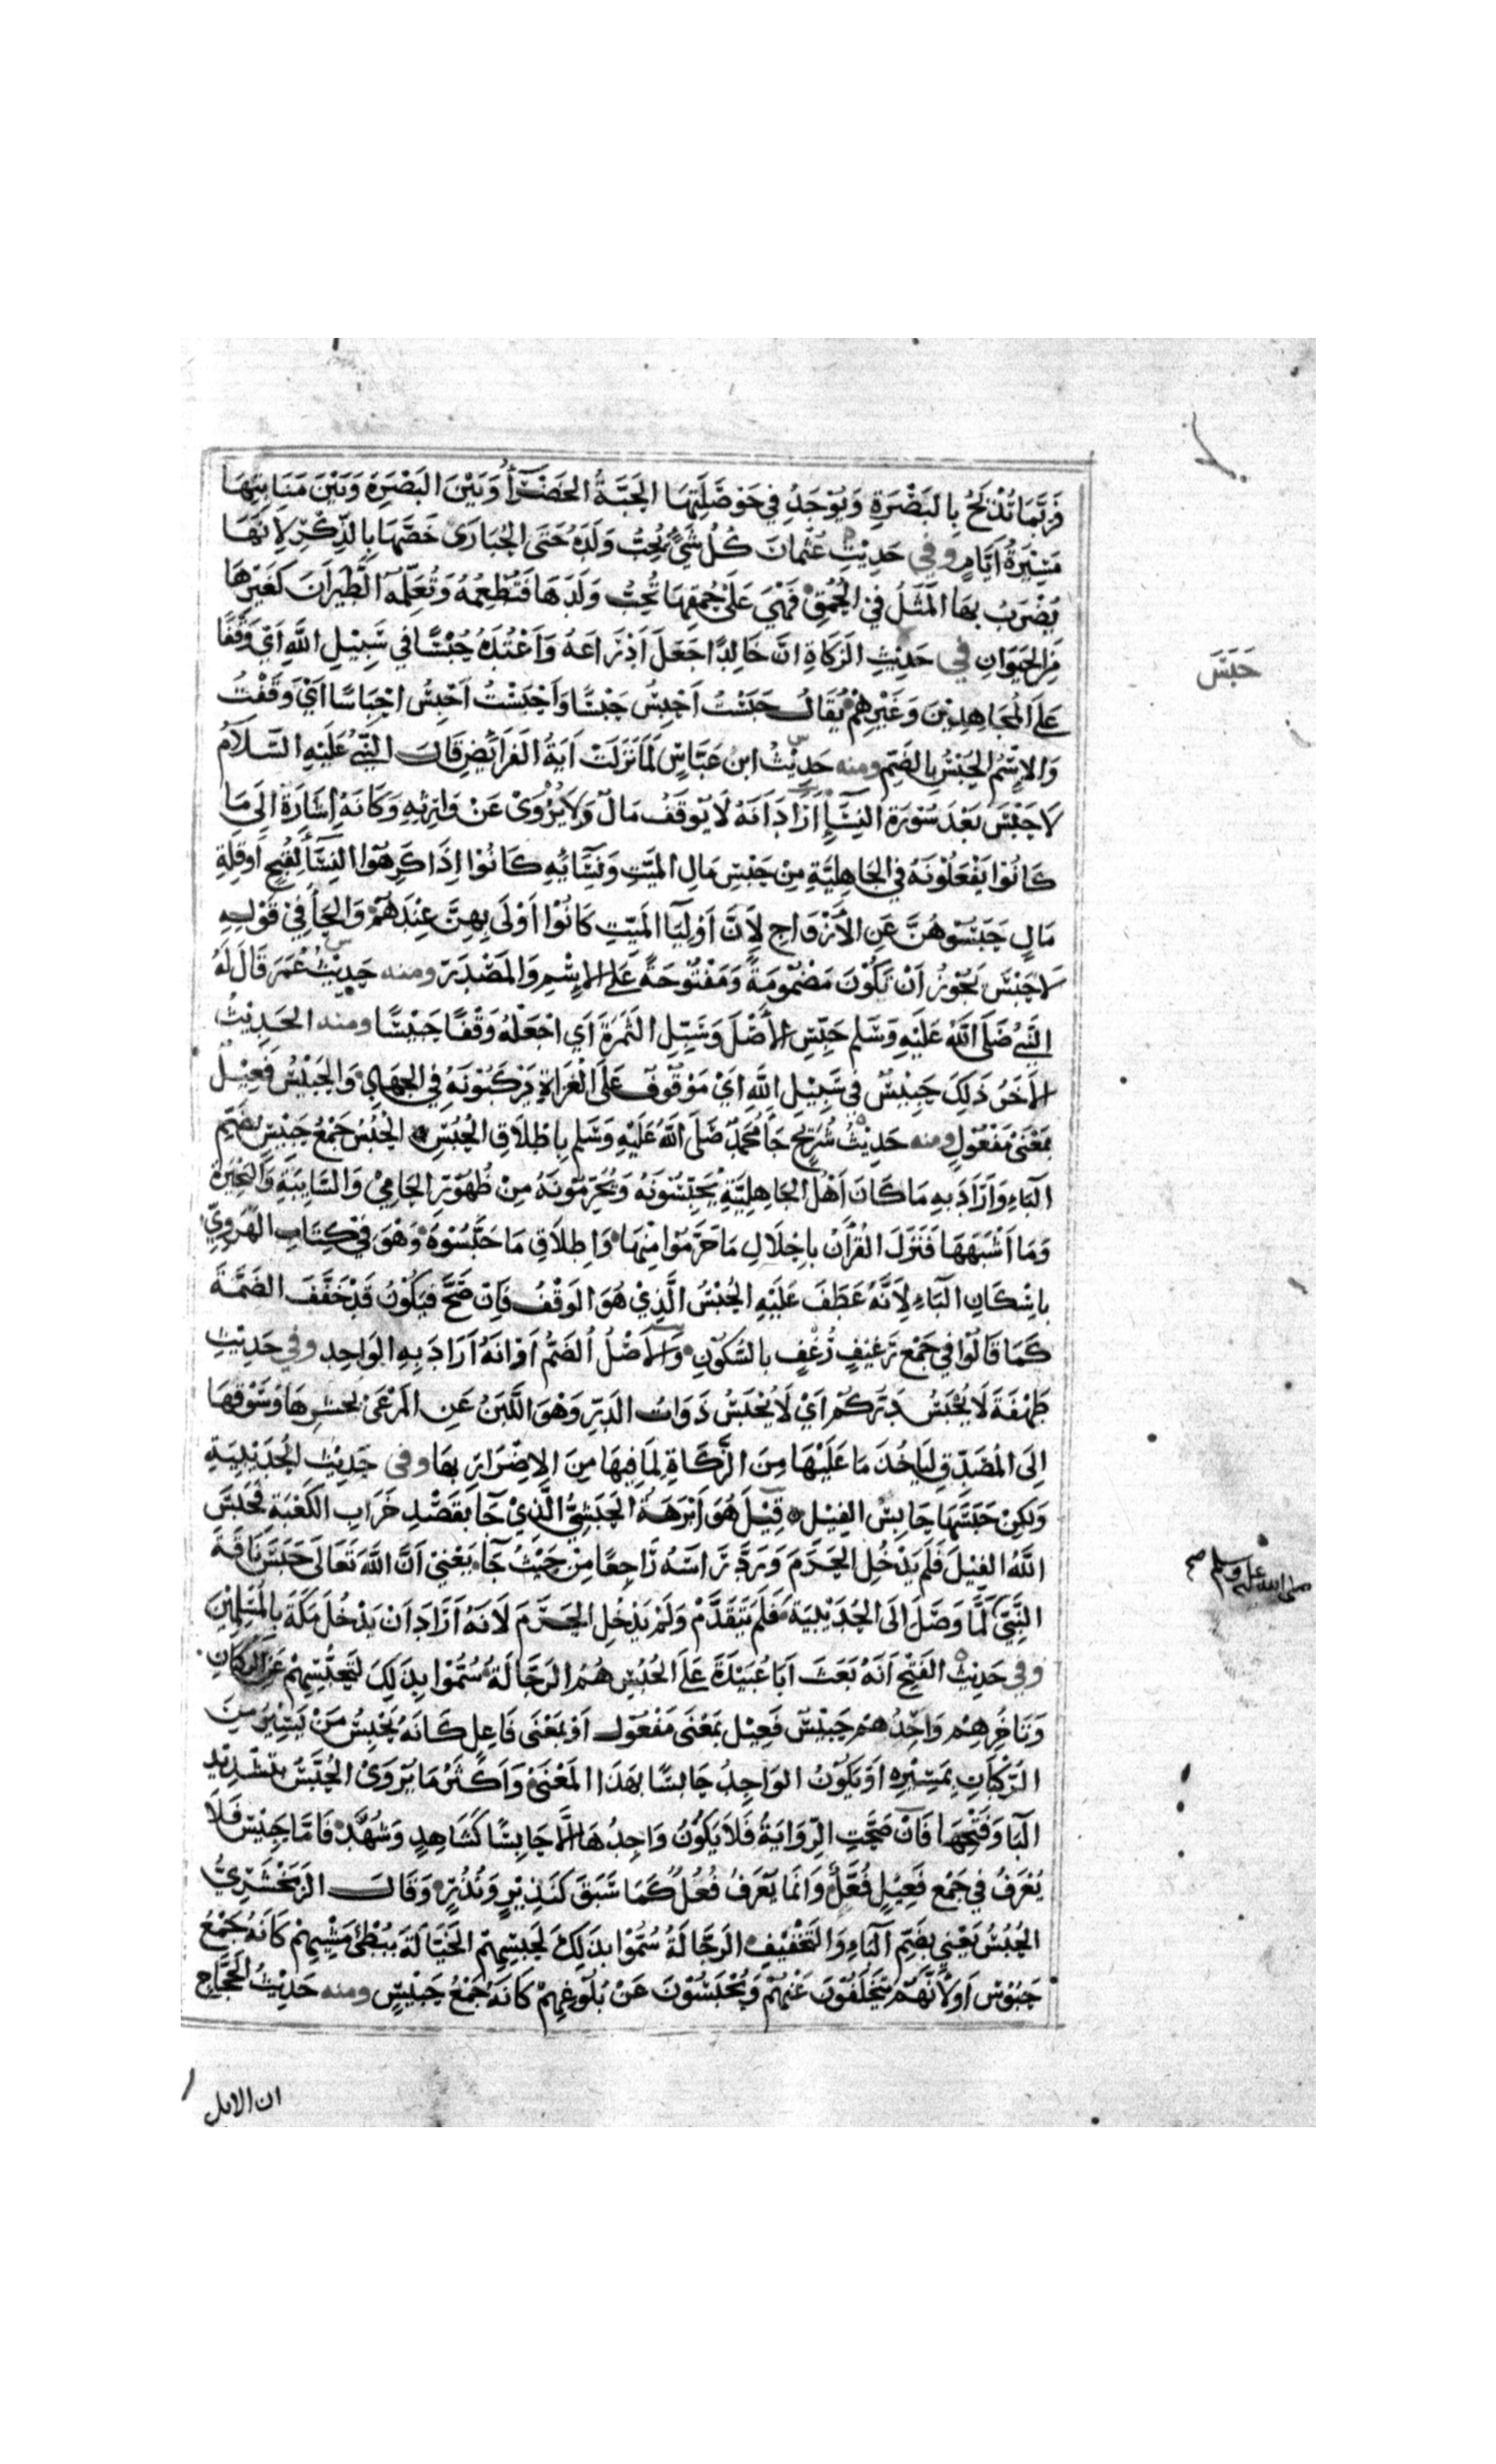 فَرُبَّمَا تُذْبَحُ بِالبَصْرَةِ وَيُوْجَدُ فِي حَوْصَلَتِهَا الحَبَّةُ الخَضْرَآءُ وَبَيْنَ البَصْرَةِ وَبَيْنَ مَنَابِتِهَا
مَسِيْرَةُ اَيَّامٍ وفي حَدِيْثِ عُثْمَانَ كُلُّ شَيْءٍ يُحِبُّ وَلَدَهُ حَتَى الحُبَارَى خَصَّهَا بِالذِّكْرِ لِاَنَهَا
يُضْرَبُ بِهَا المَثَلُ فِي الحُمْقِ فَهْيَ عَلَى حُمْقِهَا تُحِبُّ وَلَدَهَا فَتُطْعِمُهُ وَتُعَلِّمُهُ الطَّيَرَانَ كَغَيْرِهَا
مِنَ الحَيَوَانِ في حَدِيْثِ الزَكَاةِ اِنَّ خَالِدًا جَعَلَ اَدْرَاعَهُ وَاَعْتُدَهُ حُبْسًا فِي سَبِيْلِ اللَّهِ اَيْ وَقْفًا
حَبَسَ
عَلَى المُجَاهِدِيْنَ وَغَيْرِهِمْ يُقَالُ حَبَسْتُ اَحْبِسُ حَبْسًا وَاَحْبَسْتُ اُحْبِسُ اِحْبَاسًا اَيْ وَقَفْتُ
وَالاِسْمُ الحُبْسُ بِالضَمِّ ومنه حَدِيْثُ ابْنِ عَبَّاسٍ لَمَا نَزَلَتْ آيَةُ الفَرَائِضِ قَالَ النَّبِيُّ عَلَيْهِ السَّلَامُ
لَا حَبْسَ بَعْدَ سُوْرَةِ النِسَآءِ اَرَادَ اَنَهُ لَا يُوْقَفُ مَالٌ وَلَا يُزْوَى عَنْ وَارِثِهِ وَكَانَهُ اِشَارَةٌ اِلَى مَا
كَانُوْا يَفْعَلُوْنَهُ فِي الجَاهِلِيَّةِ مِنْ حَبْسِ مَالِ المَيِّتِ وَنِسَآئِهِ كَانُوْا اِذَا كَرِهُوْا النِسَآءَ لِقُبْحٍ اَوْ قِلَّةِ
مَالٍ حَبَسُوْهُنَّ عَنِ الاَزْوَاجِ لِاَنَّ اَوْلِيَآءَ المَيِّتِ كَانُوْا اَوْلَى بِهِنَّ عِنْدَهُمْ وَالحَآءُ فِيْ قَوْلِهِ
لَا حَبْسَ يَجُوْزُ اَنْ تَكُوْنَ مَضْمُوْمَةً وَمَفْتُوْحَةً عَلَى الاِسْمِ وَالمَصْدَرِ ومنه حَدِيْثُ عُمَرَ قَالَ لَهُ
النَّبِيُّ صَلَى اللَّهُ عَلَيْهِ وَسَلَم حَبِّسِ الاَصْلَ وَسَبِّلِ الثَمَرَةَ اَي اجْعَلْهُ وَقْفًا حَبِيْسًا ومنه الحَدِيْثُ
الآخَرُ ذَلِكَ حَبِيْسٌ فِي سَبِيْلِ اللَّهِ اَيْ مَوْقُوْفٌ عَلَى الغُزَاةِ يَرْكَبُوْنَهُ فِي الجِهَادِ وَالحَبِيْسُ فَعِيْلٌ
بِمَعْنَى مَفْعُوْلٍ ومنه حَدِيْثُ شُرَيْحٍ جَآءَ مُحَمَدٌ صَلَى اللَّهُ عَلَيْهِ وَسَلَم بِاِطْلَاقِ الحُبُسِ الحُبُسُ جَمْعُ حَبِيْسٍ بِضَمِّ
البَاءِ وَاَرَادَ بِهِ مَا كَانَ اَهْلُ الجَاهِلِيَّةِ يَحْبِسُوْنَهُ وَيُحَرِّمُوْنَهُ مِنْ ظُهُوْرِ الحَامِيْ وَالسَّايِبَةِ وَالبَحِيْرَةِ
وَمَا اَشْبَهَهَا فَنَزَلَ القُرْآنُ بِاِحْلَالِ مَا حَرَّمُوْا مِنْهَا وَاِطْلَاقِ مَا حَبَّسُوْهُ وَهْوَ فِيْ كِتَابِ الهَرَوِيِّ
بِاِسْكَانِ البَاءِ لِاَنَّهُ عَطَفَ عَلَيْهِ الحُبْسُ الَّذِيْ هُوَ الوَقْفُ فَاِنْ صَحَّ فَيَكُوْنُ قَدْ خَفَّفَ الضَمَّةَ
كَمَا قَالُوْا فِي جَمْعِ رَغِيْفٍ رُغْفٌ بِالسُّكُوْنِ وَالاَصْلُ الضَمُّ اَوْ اَنَهُ اَرَادَ بِهِ الوَاحِدِ وفي حَدِيْثِ
طَهْفَةَ لَا يُحْبَسُ دَرُّكُمْ اَيْ لَا يُحْبَسُ ذَوَاتُ الدَرِّ وَهْوَ اللَّبَنُ عَنِ المَرْعَى بِحَشْرِهَا وَسَوْقِهَا
اِلَى المُصَدِّقِ لِيَاخُذَ مَا عَلَيْهَا مِنَ الزَكَاةِ لِمَا فِيْهَا مِنَ الاِضْرَارِ بِهَا وفي حَدِيْثِ الحُدَيْبِيَةِ
وَلَكِنْ حَبَسَهَا حَابِسُ الفِيْلِ قِيْلَ هُوَ اَبْرَهَةُ الحَبَشِيُّ الَّذِيْ جَآءَ بِقَصْدِ خَرَابِ الكَعْبَةِ فَحَبَسَ
اللَّهُ الفِيْلَ فَلَمْ يَدْخُلِ الحَرَمَ وَرَدَّ رَاسَهُ رَاجِعًا مِنْ حَيْثُ جَآءَ يَعْنِيْ اَنَّ اللَّهَ تَعَالَى حَبَسَ نَاقَةَ
صلى الله عليه وسلم صح
النَّبِيِّ لَمَّا وَصَلَ اِلَى الحُدَيْبِيَةِ فَلَمْ يَتَقَدَّمْ وَلَمْ يَدْخُلِ الحَرَمَ لَانَهُ اَرَادَ اَنْ يَدْخُلَ مَكَةَ بِالمُسْلِمِيْنَ
وفي حَدِيْثِ الفَتْحِ اَنَهُ بَعَثَ اَبَا عُبَيْدَةَ عَلَى الحُبُسِ هُمُ الرَجَّالَةُ سُمُّوْا بِذَلِكَ لِتَحَبُّسِهِمْ عَنِ الرُكْبَانِ
وَتَاخُّرِهِمْ وَاحِدُهُمْ حَبِيْسٌ فَعِيْل بِمَعْنَى مَفْعُوْل اَوْ بِمَعْنَى فَاعِل كَانَهُ يَحْبِسُ مَنْ يَسِيْرُ مِنَ
الرُكْبَانِ بِمَسِيْرِهِ اَوْ يَكُوْنُ الوَاحِدُ حَابِسًا بِهَذَا المَعْنَى وَاَكْثَرُ مَا يُرْوَى الحُبَّسُ بِتَشْدِيْدِ
البَآ وَفَتْحِهَا فَاِنْ صَحَّتِ الرِّوَايَةُ فَلَا يَكُوْنُ وَاحِدُهَا اِلَّا حَابِسًا كَشَاهِدٍ وَشُهَّدٍ فَامَّا حَبِيْسٌ فَلَا
يُعْرَفُ فِي جَمْعِ فَعِيْلٍ فُعَّلٌ وَاِنَمَا يُعْرَفُ فُعُلٌ كَمَا سَبَقَ كَنَذِيْرٍ وَنُذُرٍ وَقَالَ الزَمَخْشَرِيُّ
الحُبُسُ يَعْنِي بِضَمِّ البَآءِ وَالتَخْفِيْفِ الرَجَّالَةُ سُمُّوْا بِذَلِكَ لِحَبْسِهِمْ الخَيَّالَةَ بِبُطْئِ مَشْيِهِمْ كَانَهُ جَمْعُ
حَبُوْسٍ اَوْ لِاَنَّهُمْ يَتَخَلَّفُوْنَ عَنْهُمْ وَيُحْبَسُوْنَ عَنْ بُلُوْغِهِمْ كَانَهُ جَمْعُ حَبِيْسٍ ومنه حَدِيْثُ الحَجَّاجِ
ان الابل